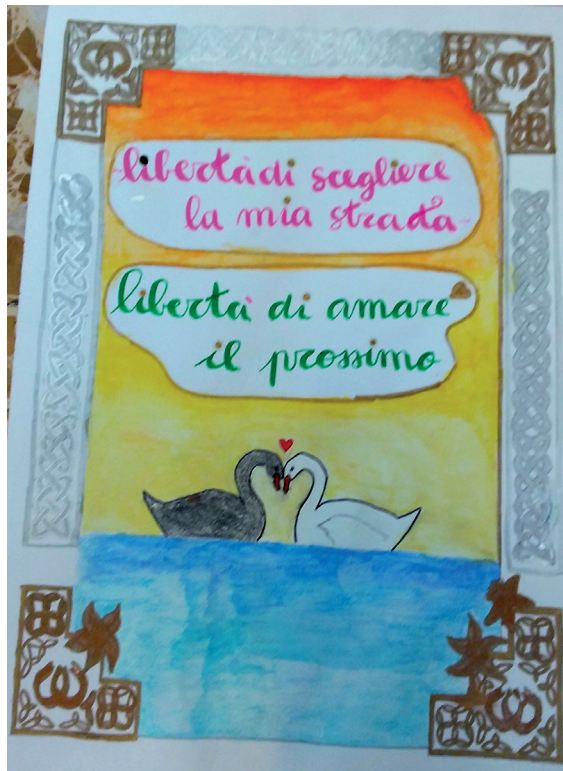 libertà di scegliere
la mia strada
libertà di amare
il prossimo